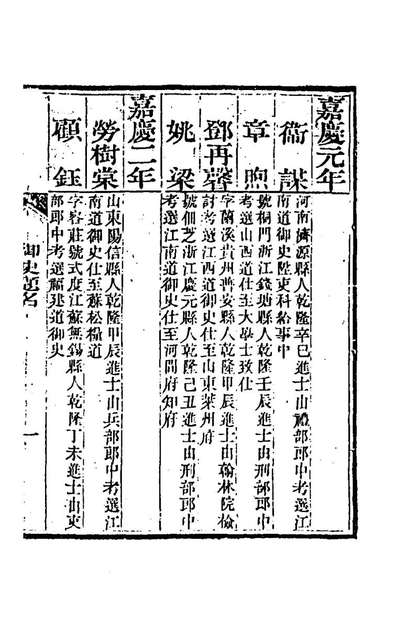 嘉慶元年
衞謀
河南濟源縣人乾隆辛巳進士由禮部郎中考選江
南道御史陞吏科給事中
章煦
號桐門浙江錢塘縣人乾隆壬辰進士由刑部郎中
考選山西道仕至大學士致仕
鄧再馨
字蘭溪貴州普安縣人乾隆甲辰進士由翰林院檢
討考選江西道御史仕至山東萊州府
姚梁
號佃芝浙江慶元縣人乾隆己丑進士由刑部郎中
考選江南道御史仕至河間府知府
嘉慶二年
勞樹棠
山東陽信縣人乾隆甲辰進士由兵部郎中考選江
南道御史仕至蘇松糧道
顧鈺
字容莊號式度江蘇無錫縣人乾隆丁未進士由吏
部郎中考選福建道御史
御史題名
一